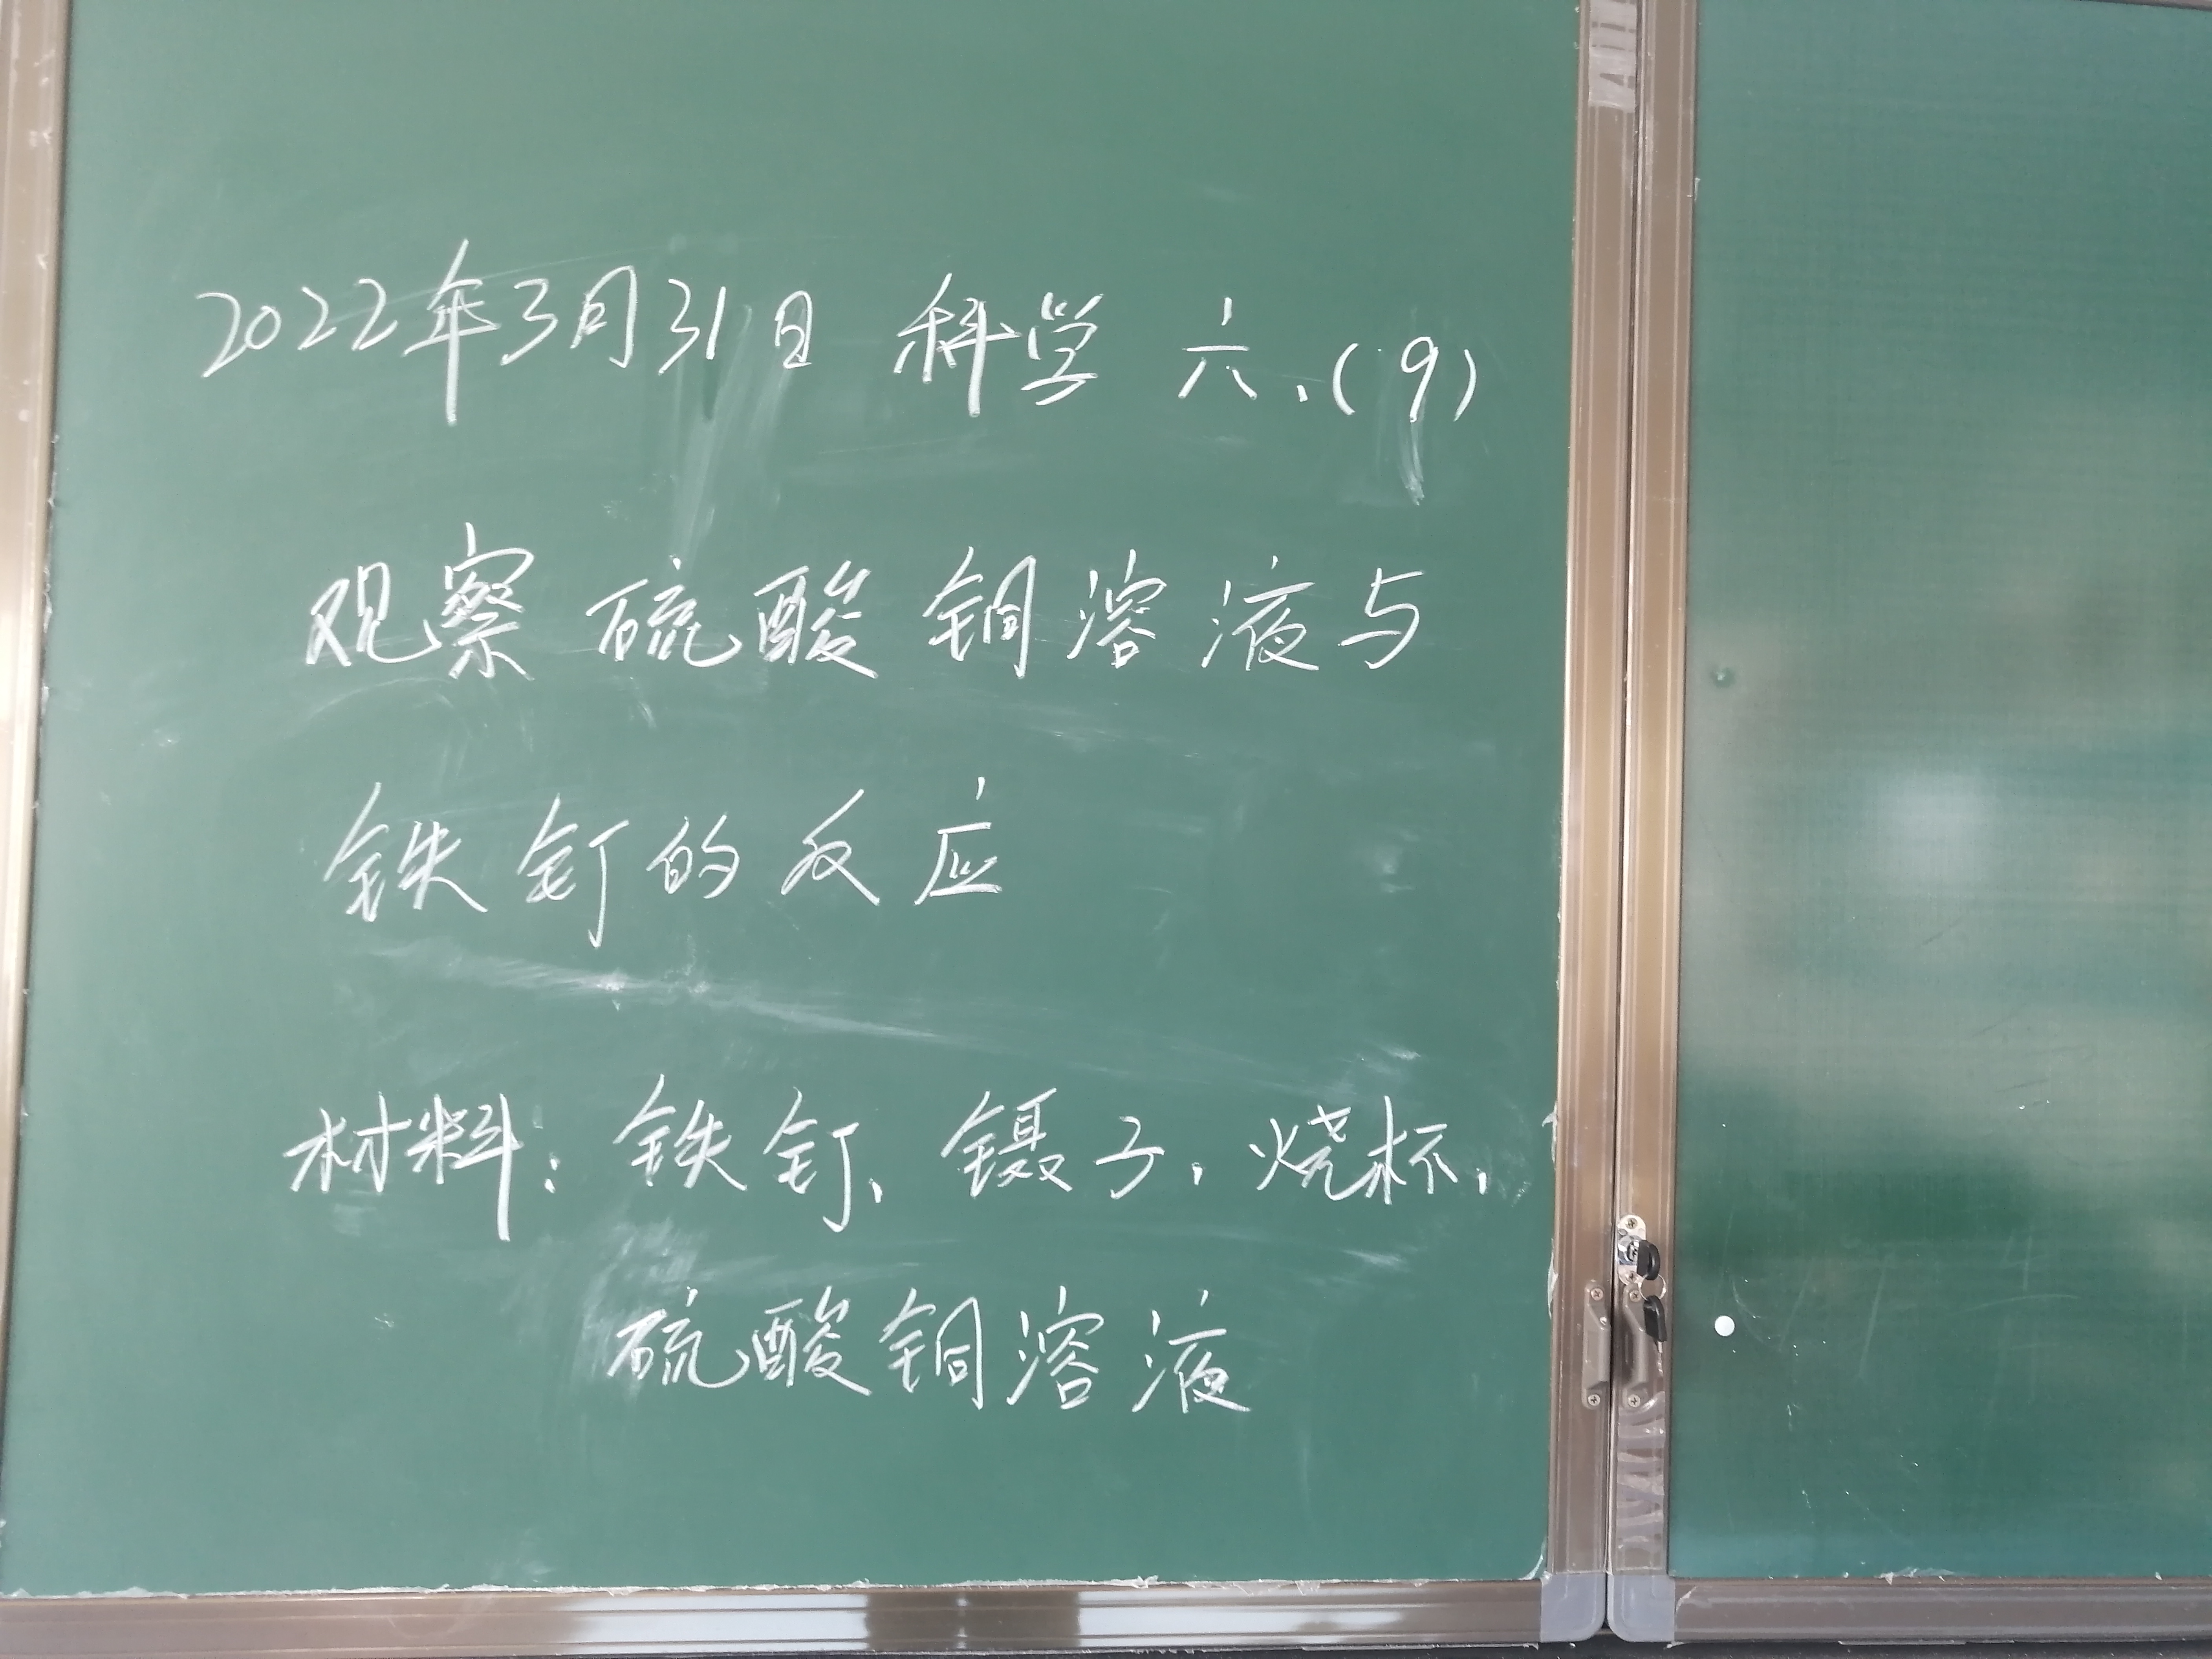 2022年3月31日 科学 六、(9)
观察硫酸铜溶液与
铁钉的反应
材料：铁钉、镊子、烧杯、
硫酸铜溶液